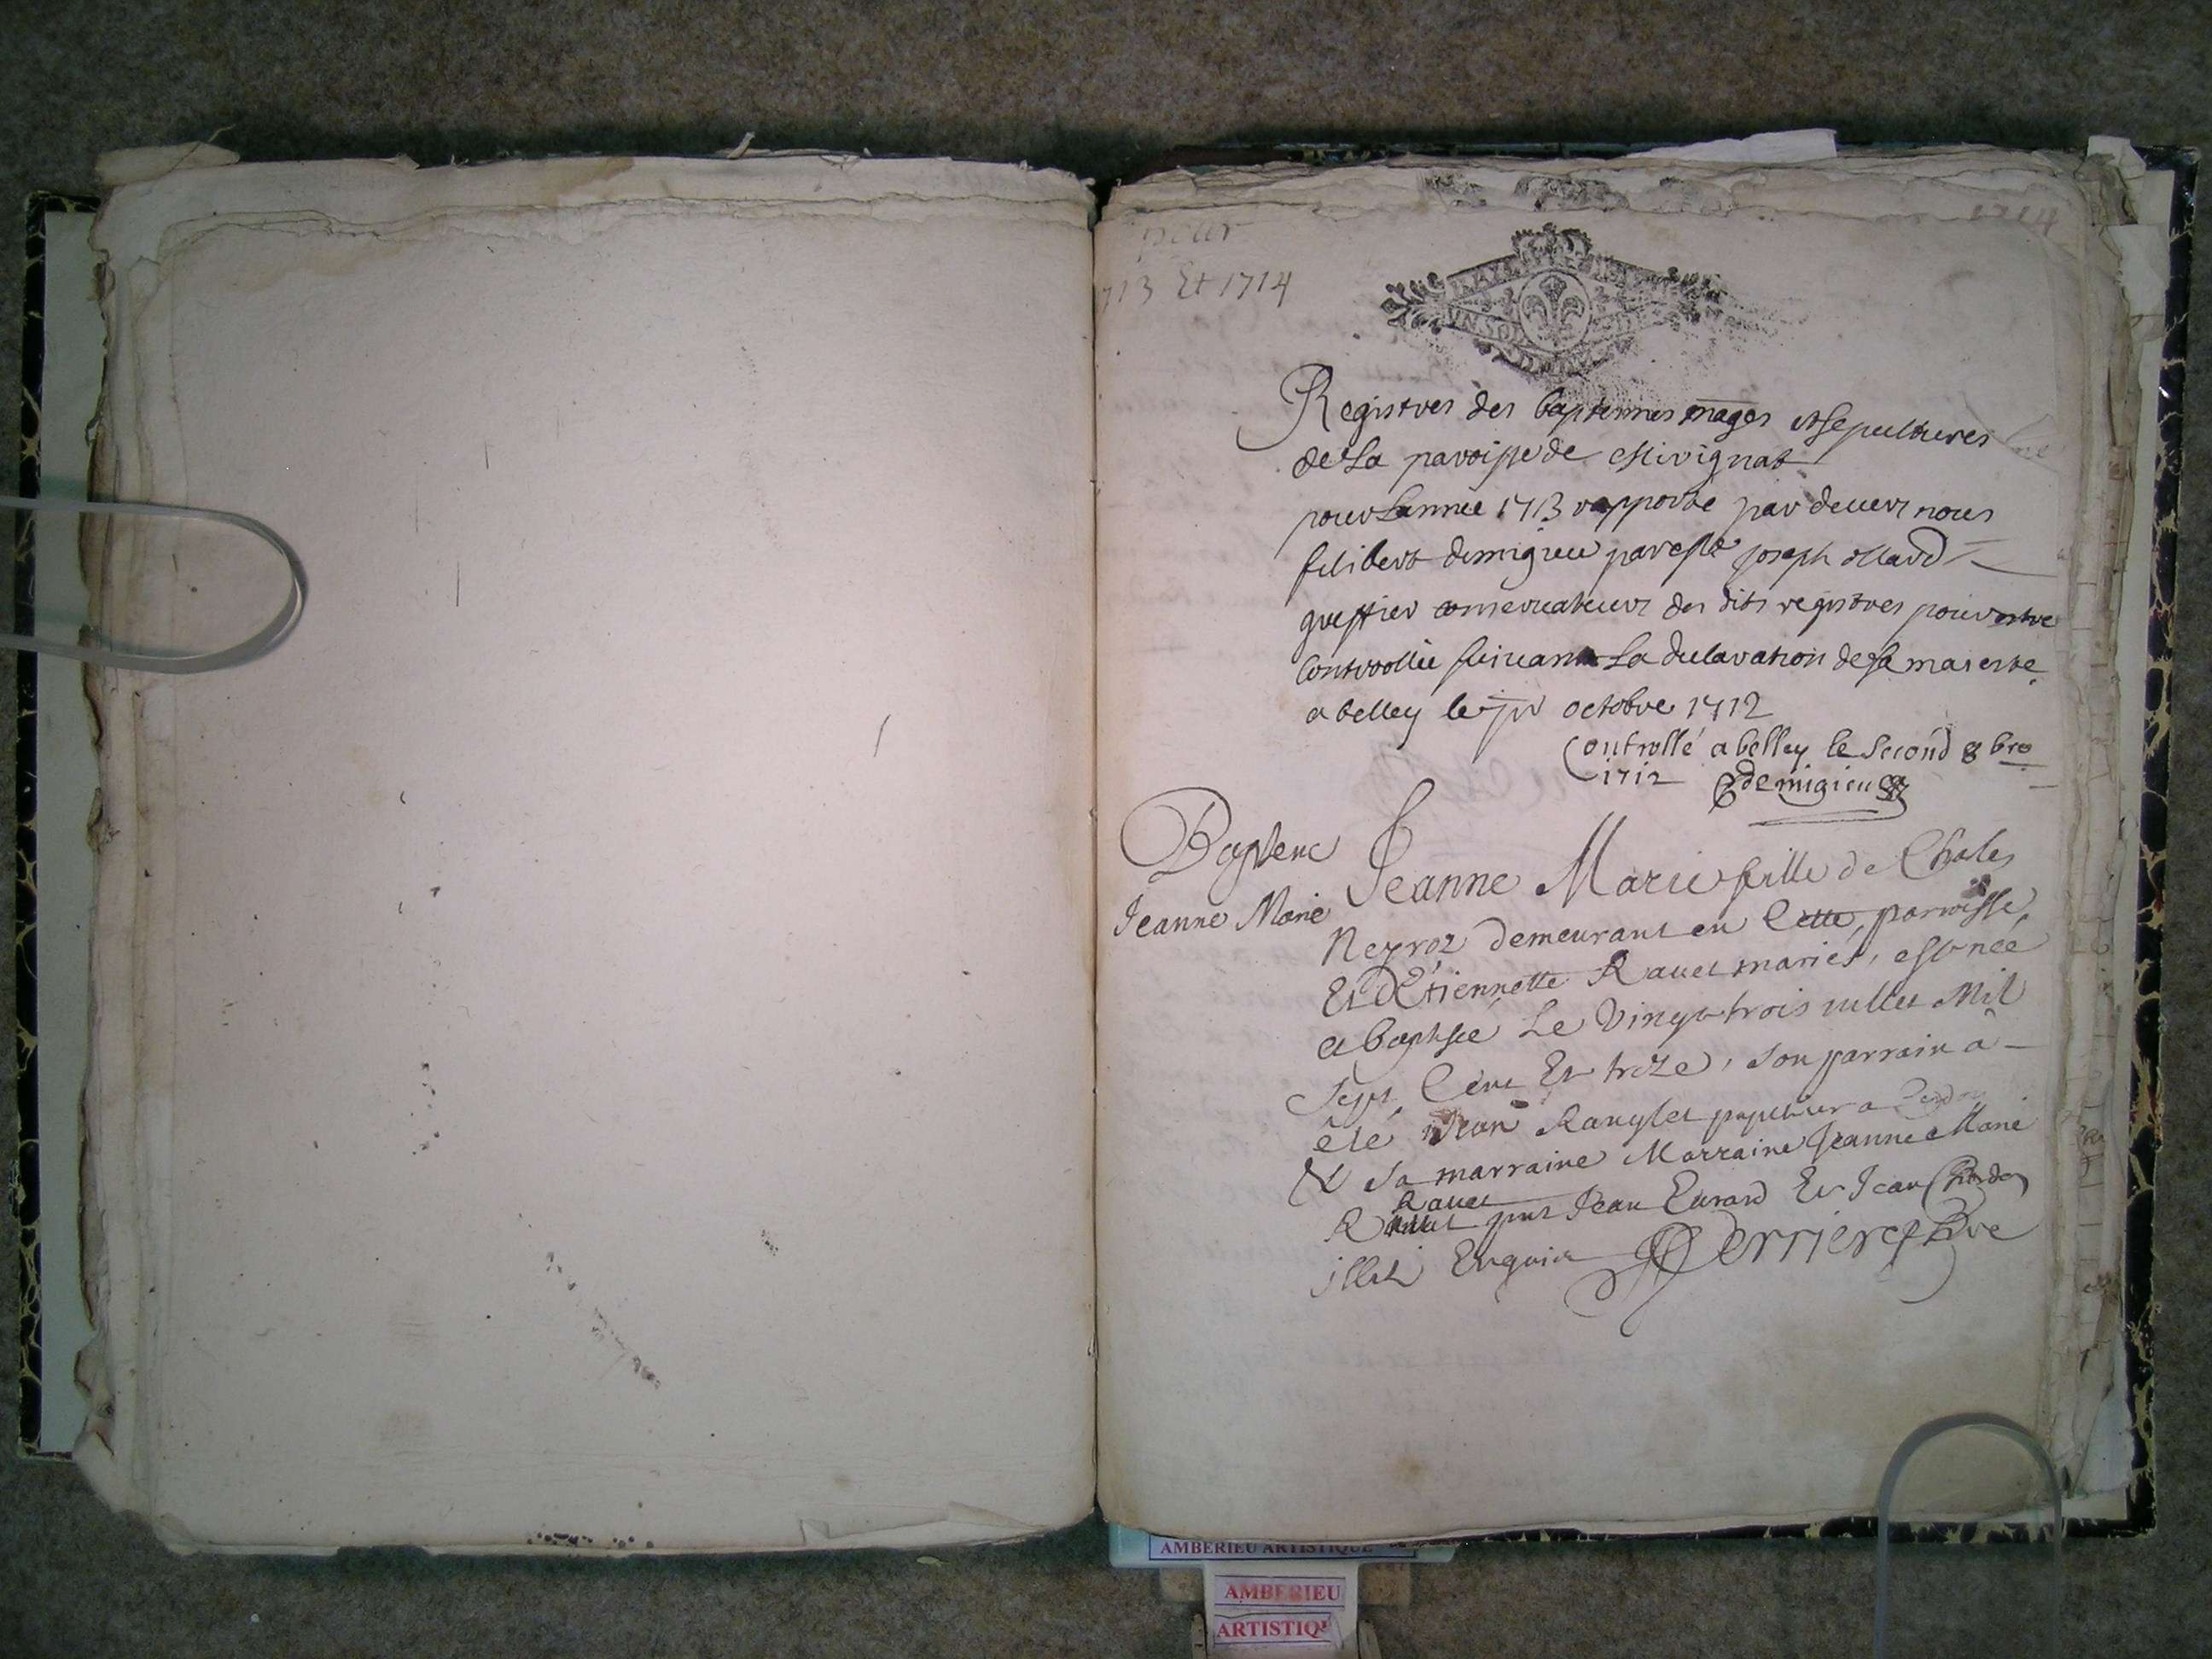 pour
713 Et 1714
1714
VN SOL
Registres des baptemes mages et sepultures
de la paroisse de
pour Lannee 1713 rapporte par deuers nous
filibert demigieu par Joseph
greffier conseruateur des dits registres pour estre
Controllée suiuant La declaration de sa maieste
a belley le jer octobre 1712
Controllé a belley le second 8bre
1712 demigieu
Bapteme
Jeanne Marie
Jeanne Marie fille de Chales
Neyroz demeurant en Cette parroisse
Et d'Etiennette Rauet mariés, est née
et baptisée Le Vingt trois iullet Mil
Sept Cent Et treze, son parrain a
été Jean a
& sa marraine Marraine Jeanne Marie
Rauet
pnt Jean Eurard Et Jean
illet Enquis Perrier ptre
AMBERIEU ARTISTIQUE
AMBERIEU
ARTISTIQU